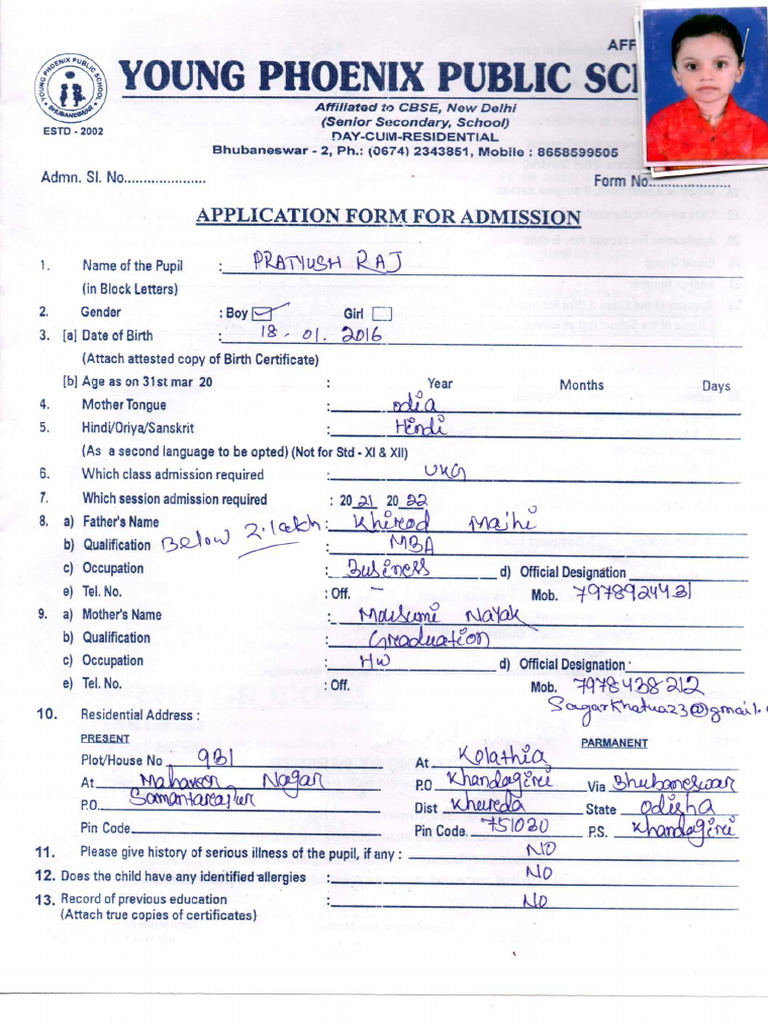 AFF
YOUNG PHOENIX PUBLIC SC
YOUNG PHOENIX PUBLIC SCHOOL
BHUBANESWAR
ESTD - 2002
Affiliated to CBSE, New Delhi
(Senior Secondary, School)
DAY-CUM-RESIDENTIAL
Bhubaneswar - 2, Ph.: (0674) 2343851, Mobile : 8658599505
Admn. Sl. No..................... Form No.....................
APPLICATION FORM FOR ADMISSION
1. Name of the Pupil : PRATYUSH RAJ
(in Block Letters)
2. Gender : Boy ✓ Girl
3. [a] Date of Birth : 18 . 01 . 2016
(Attach attested copy of Birth Certificate)
[b] Age as on 31st mar 20 : Year Months Days
4. Mother Tongue : odia
5. Hindi/Oriya/Sanskrit : Hindi
(As a second language to be opted) (Not for Std - XI & XII)
6. Which class admission required : UKG
7. Which session admission required : 2021 2022
8. a) Father's Name : Khirod Majhi
b) Qualification Below 2.lakh : MBA
c) Occupation : Business d) Official Designation
e) Tel. No. : Off. - Mob. 7978924431
9. a) Mother's Name : Mousumi Nayak
b) Qualification : Graduation
c) Occupation : HW d) Official Designation :
e) Tel. No. : Off. Mob. 7978438212
Sagarkhatua23@gmail.
10. Residential Address :
PRESENT PARMANENT
Plot/House No 931 At Kolathia
At Mahaveer Nagar P.O Khandagiri Via Bhubaneswar
P.O. Samantarapur Dist Khurda State Odisha
Pin Code Pin Code. 751030 P.S. Khandagiri
11. Please give history of serious illness of the pupil, if any : NO
12. Does the child have any identified allergies : NO
13. Record of previous education : NO
(Attach true copies of certificates)